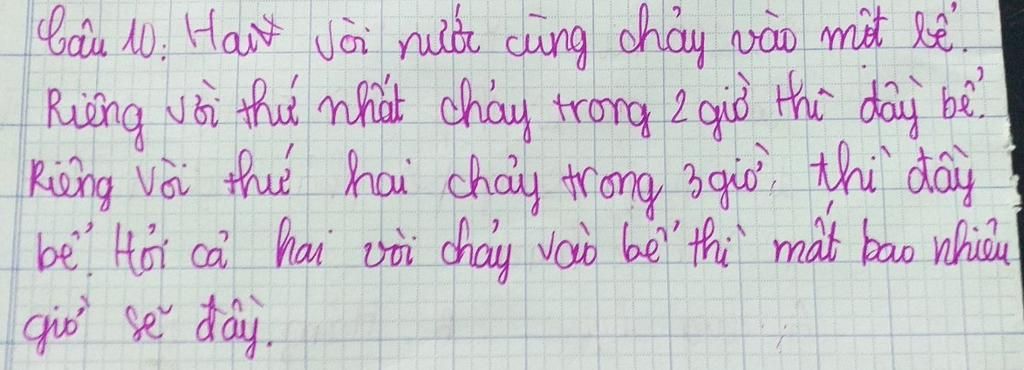 Câu 10: Hai vòi nước cùng chảy vào một bể.
Riêng vòi thứ nhất chảy trong 2 giờ thì đầy bể.
Riêng vòi thứ hai chảy trong 3 giờ, thì đầy
bể. Hỏi cả hai vòi chảy vào bể thì mất bao nhiêu
giờ sẽ đầy.